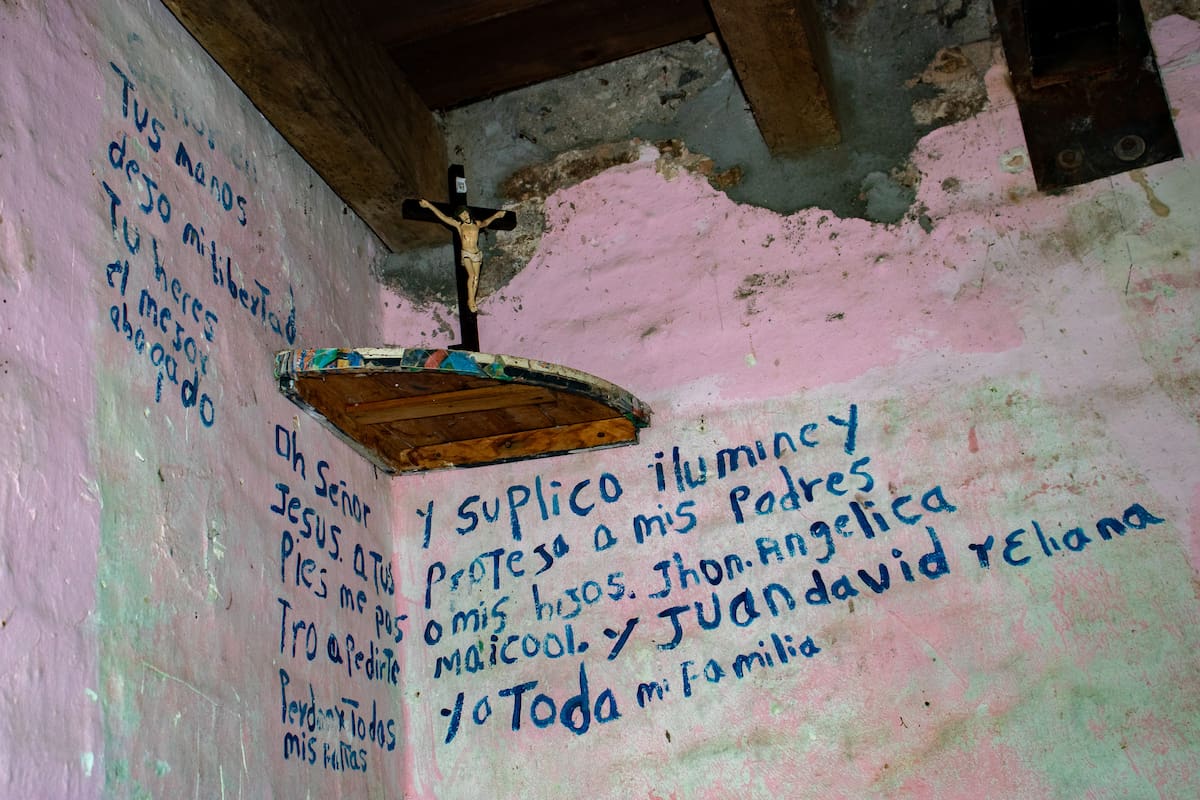 Tus manos
dejo mi libertad
Tu heres
el mejor
abogado
Oh Señor
Jesus. a Tus
Pies me pos
Tro a pedirte
Perdon x Todas
mis Faltas
y suplico ilumine y
proteja a mis padres
a mis hijos. Jhon. Angelica
maicool. y Juan david y Eliana
ya Toda mi Familia